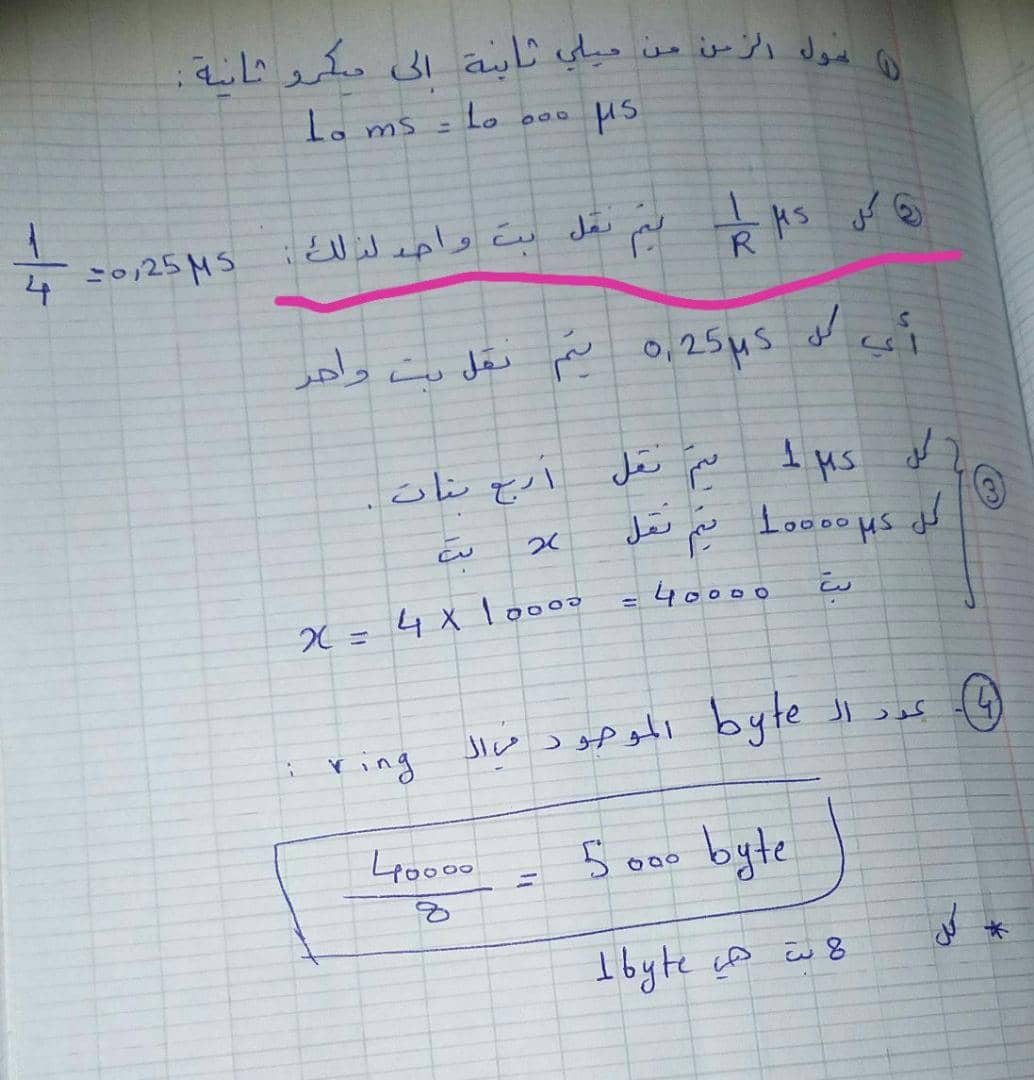 ① نحول الزمن من ميلي ثانية إلى ميكرو ثانية :
10 ms = 10 000 μs
② كل 1/R μs يتم نقل بت واحد لذلك : 1/4 = 0,25 μs
أي كل 0,25 μs يتم نقل بت واحد
③ كل 1 μs يتم نقل أربع بتات .
كل 10000 μs يتم نقل x بت
x = 4 × 10000 = 40000 بت
④ - عدد الـ byte الموجود في الـ ring :
40000/8 = 5 000 byte
* كل 8 بت هي 1 byte